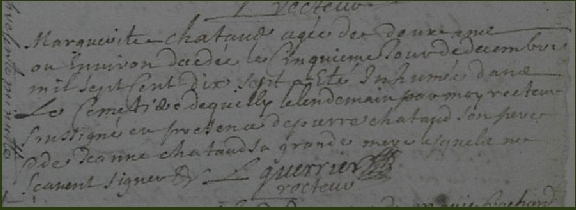 recteur
Margueritte chataud agée de douze ans
ou environ décédée le Cinquieme Jour de decembre
mil sept Cent dix sept a Eté Inhumée dans
Le Cemetiere de quilly le lendemain par moy recteur
soussigné en presence de pierre chataud son pere
& de Jeanne chataud sa grande mere a quels ne
scavent signer &c L guerrier
recteur